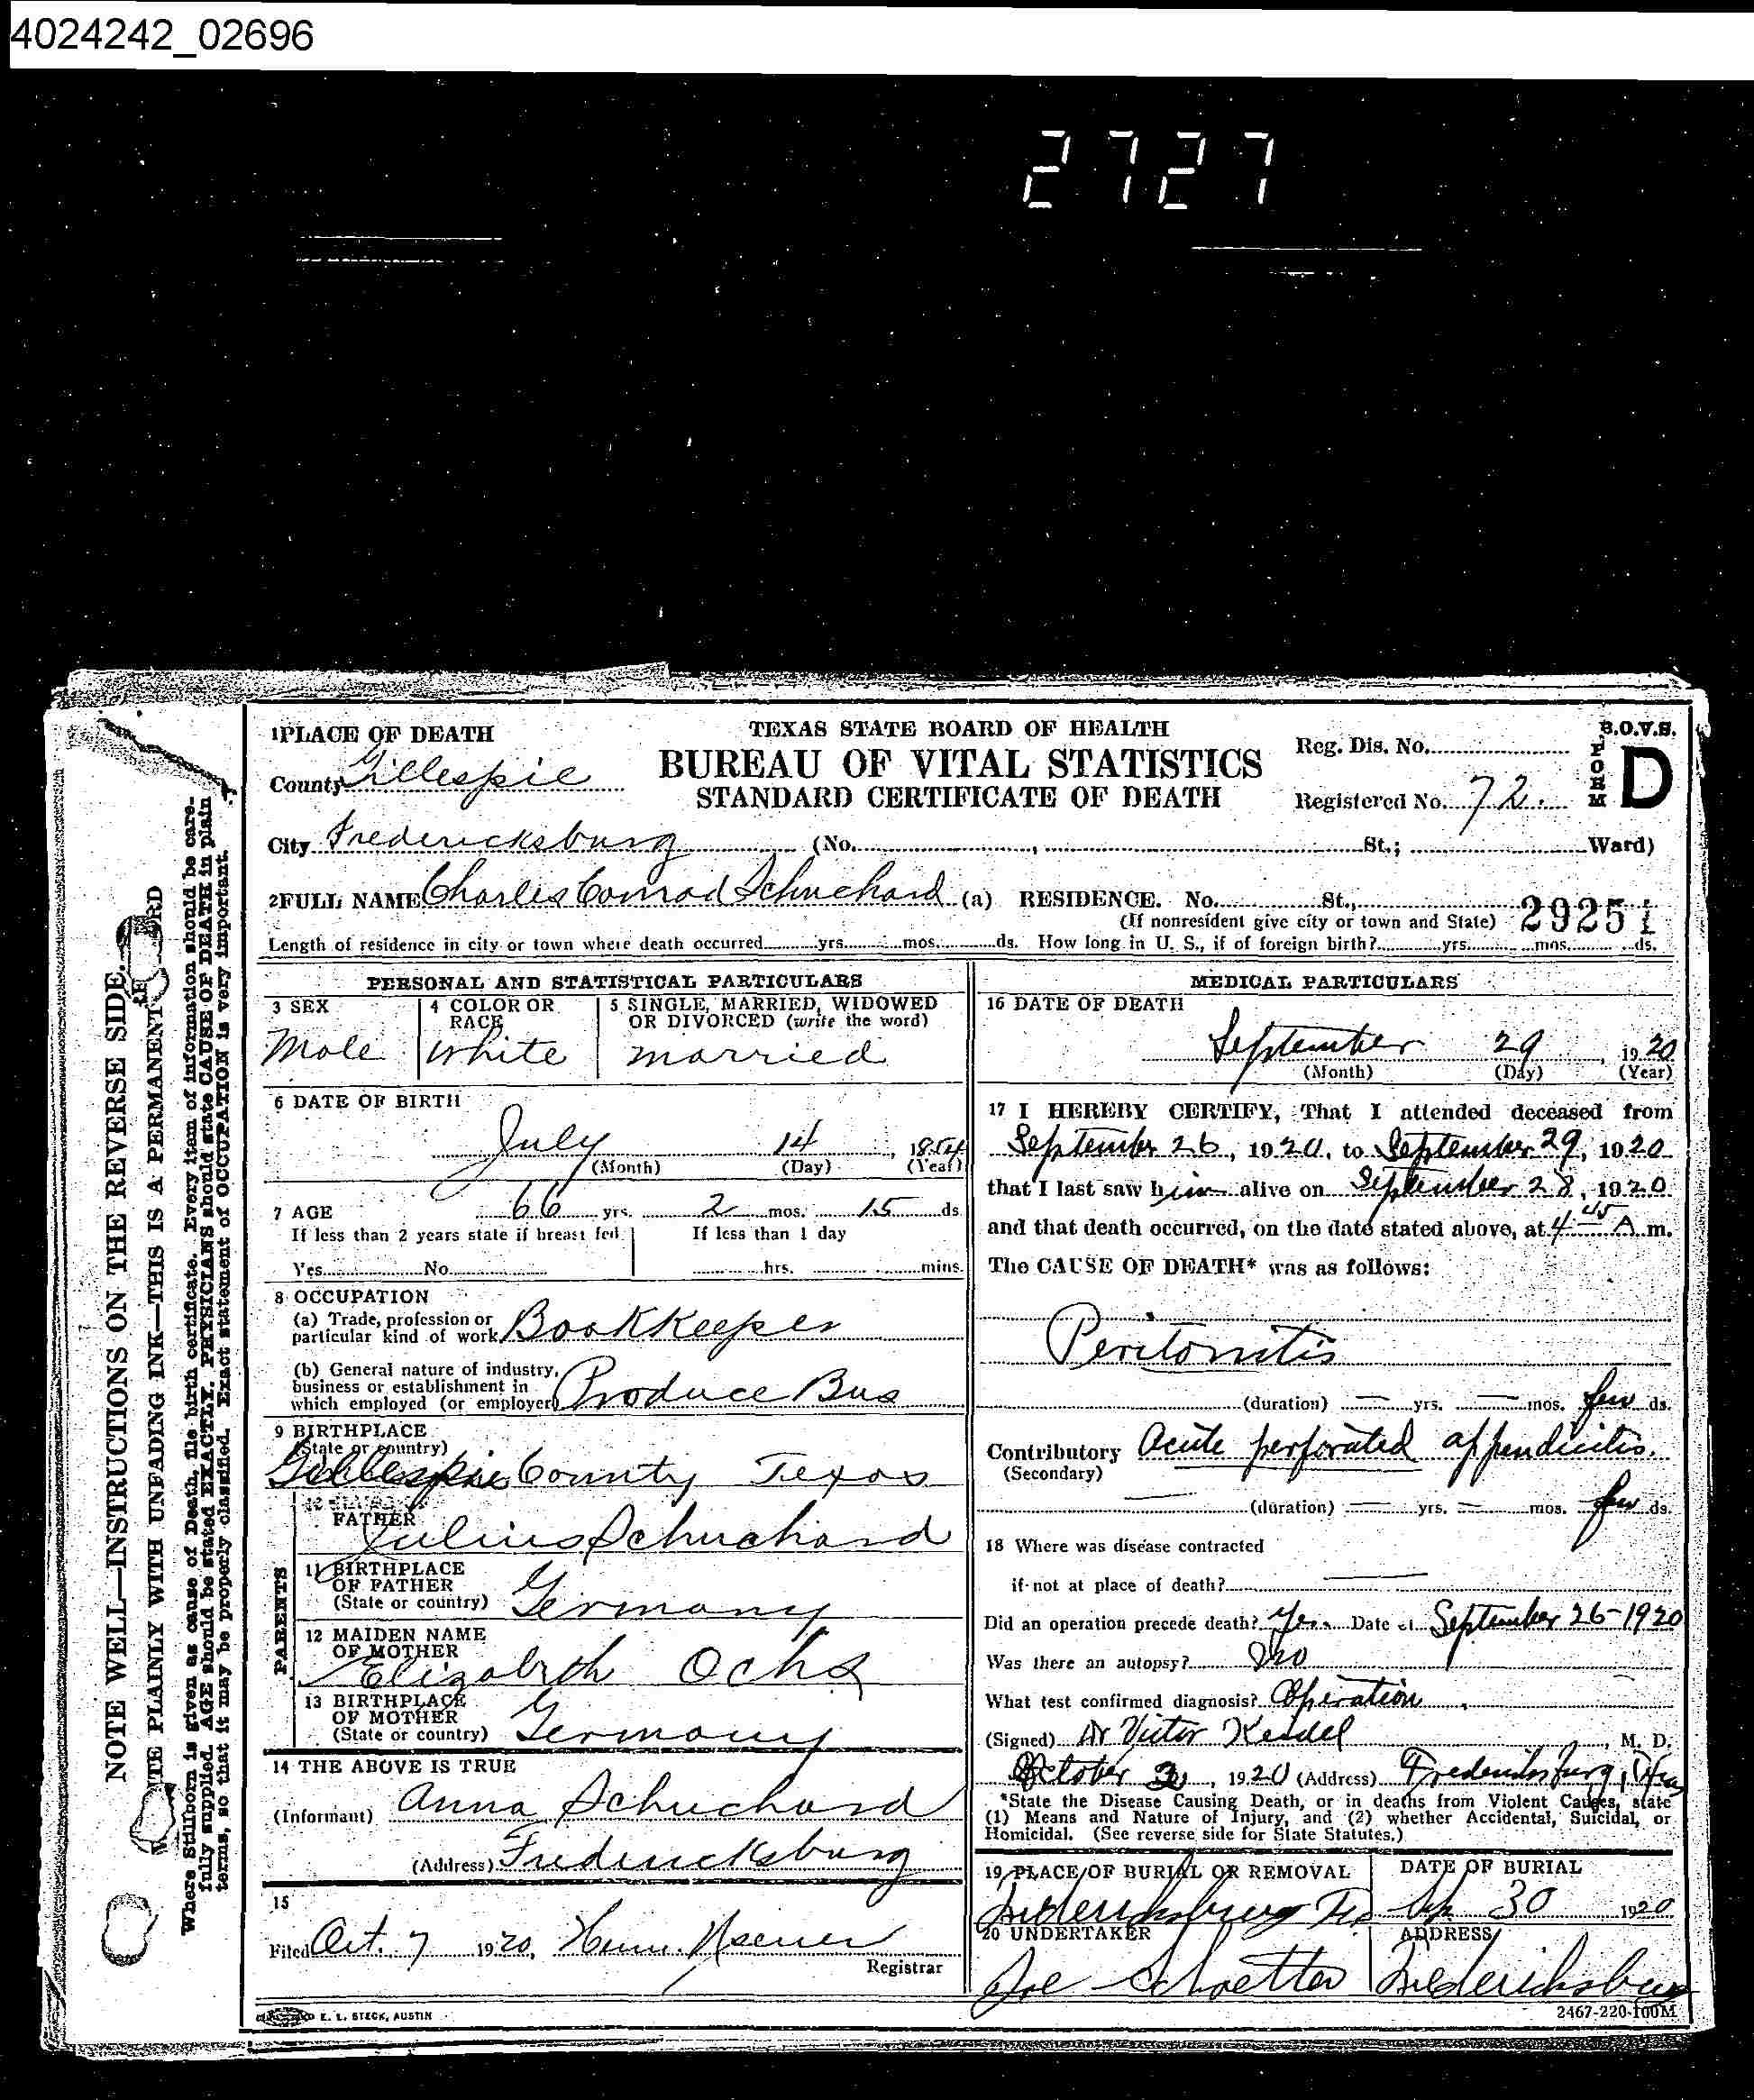 4024242_02696
2727
1 PLACE OF DEATH
TEXAS STATE BOARD OF HEALTH
B.O.V.S.
FORM
D
County Gillespie
BUREAU OF VITAL STATISTICS
Reg. Dis. No.
STANDARD CERTIFICATE OF DEATH
Registered No. 72.
City Fredericksburg (No. , St.; Ward)
2 FULL NAME Charles Conrad Schuchard (a) RESIDENCE. No. St.,
(If nonresident give city or town and State) 29251
Length of residence in city or town where death occurred yrs. mos. ds. How long in U. S., if of foreign birth? yrs. mos. ds.
PERSONAL AND STATISTICAL PARTICULARS
3 SEX
Male
4 COLOR OR RACE
White
5 SINGLE, MARRIED, WIDOWED
OR DIVORCED (write the word)
married
6 DATE OF BIRTH
July 14, 1854
(Month) (Day) (Year)
7 AGE 66 yrs. 2 mos. 15 ds
If less than 2 years state if breast fed
If less than 1 day
Yes No
hrs. mins.
8 OCCUPATION
(a) Trade, profession or
particular kind of work Bookkeeper
(b) General nature of industry,
business or establishment in
which employed (or employer) Produce Bus
9 BIRTHPLACE
(State or country)
Gillespie County Texas
PARENTS
FATHER
Julius Schuchard
11 BIRTHPLACE
OF FATHER
(State or country) Germany
12 MAIDEN NAME
OF MOTHER
Elizabeth Ochs
13 BIRTHPLACE
OF MOTHER
(State or country) Germany
14 THE ABOVE IS TRUE
(Informant) Anna Schuchard
(Address) Fredericksburg
15
Filed Oct. 7 1920,
Registrar
MEDICAL PARTICULARS
16 DATE OF DEATH
September 29, 1920
(Month) (Day) (Year)
17 I HEREBY CERTIFY, That I attended deceased from
September 26, 1920, to September 29, 1920
that I last saw him alive on September 28, 1920
and that death occurred, on the date stated above, at 4 45 A.m.
The CAUSE OF DEATH* was as follows:
Peritonitis
(duration) — yrs. — mos. few ds.
Contributory Acute perforated appendicitis.
(Secondary)
(duration) — yrs. — mos. few ds.
18 Where was disease contracted
if not at place of death?
Did an operation precede death? Yes. Date of September 26-1920
Was there an autopsy? No
What test confirmed diagnosis? Operation
(Signed) Dr Victor Keidel, M. D.
October , 1920 (Address) Fredericksburg, Texas
*State the Disease Causing Death, or in deaths from Violent Causes, state
(1) Means and Nature of Injury, and (2) whether Accidental, Suicidal, or
Homicidal. (See reverse side for State Statutes.)
19 PLACE OF BURIAL OR REMOVAL
Fredericksburg Tex
DATE OF BURIAL
Sep. 30 1920
20 UNDERTAKER
Joe Schaetter
ADDRESS
Fredericksburg
E. L. STECK, AUSTIN
2467-220-100M
NOTE WELL—INSTRUCTIONS ON THE REVERSE SIDE.
WRITE PLAINLY WITH UNFADING INK—THIS IS A PERMANENT RECORD
Where Stillborn is given as cause of Death, file birth certificate. Every item of information should be care-
fully supplied. AGE should be stated EXACTLY. PHYSICIANS should state CAUSE OF DEATH in plain
terms, so that it may be properly classified. Exact statement of OCCUPATION is very important.